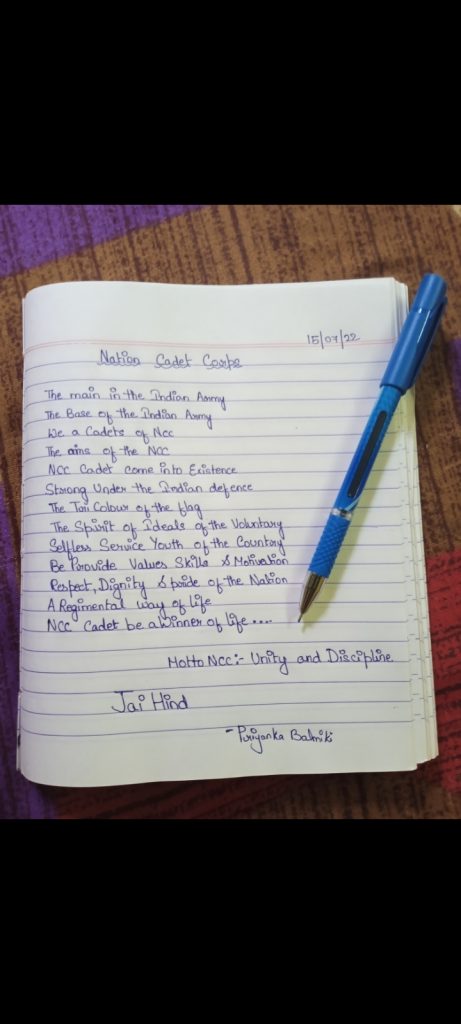 15/07/22
Nation Cadet Corps
The main in the Indian Army
The Base of the Indian Army
We a Cadets of Ncc
The aims of the NCC
NCC Cadet come into Existence
Strong Under the Indian defence
The Tri Colour of the flag
The Spirit of Ideals of the Voluntary
Selfless Service Youth of the Country
Be Provide Values Skills & Motivation
Respect, Dignity & pride of the Nation
A Regimental way of life
NCC Cadet be a winner of life ....
Motto Ncc:- Unity and Discipline
Jai Hind
- Priyanka Balmiki